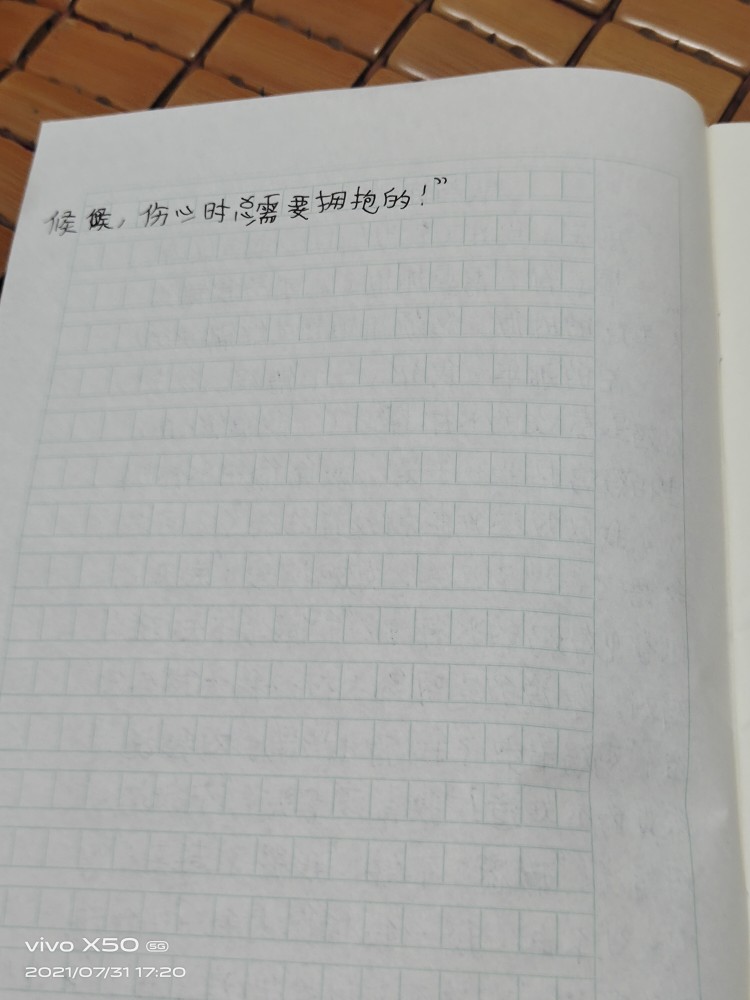 候候，伤心时总需要拥抱的！”
vivo X50 5G
2021/07/31 17:20